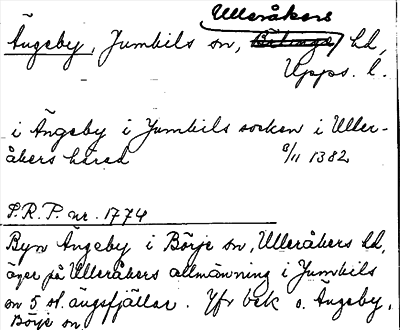 Ulleråkers
Ängeby, Jumkils sn, Bälinge hd,
Upps. l.
i Ängeby i Jumkils socken i Uller-
åkers härad 8/11 1382
S.R.P. nr. 1774
Byn Ängeby i Börje sn, Ulleråkers hd,
äger på Ulleråkers allmänning i Jumkils
sn 5 st. ängsfjällar. Jfr bek o. Ängeby,
Börje sn.